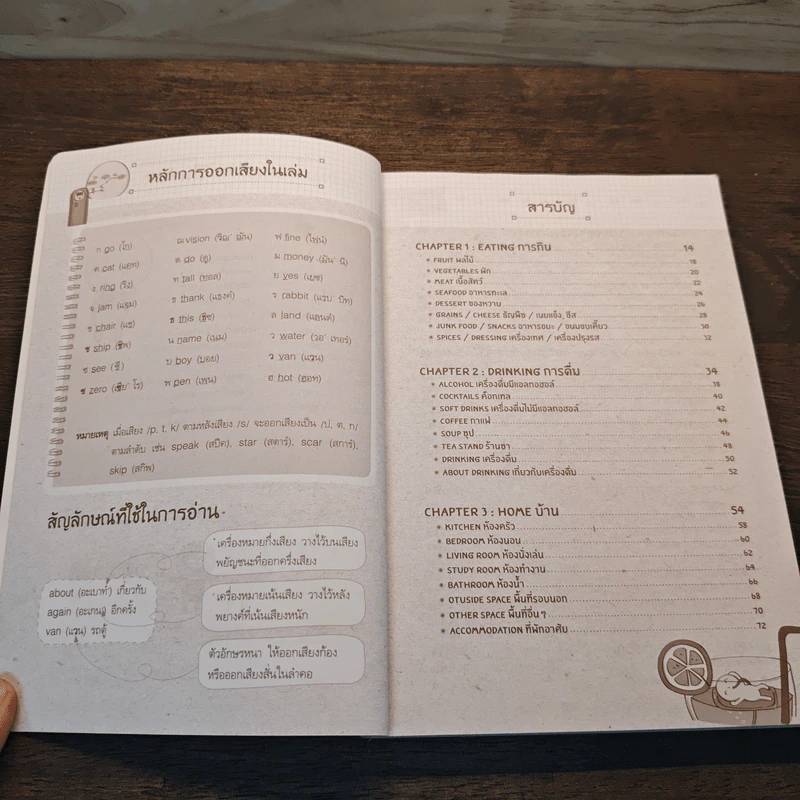 หลักการออกเสียงในเล่ม
ก go (โก)
ค cat (แคท)
ง ring (ริง)
จ jam (แจม)
ช chair (แช)
ช ship (ชิพ)
ซ see (ซี)
ซ zero
vision
ด do (ดู)
ท tall (ทอล)
ธ thank (แธงค์)
ธ this (ธิซ)
น name (เนม)
บ boy (บอย)
พ pen (เพน)
ฟ fine (ไฟน์)
ม money
ย yes (เยซ)
ร rabbit
ล land (แลนด์)
ว water
ว van (แวน)
ฮ hot (ฮอท)
หมายเหตุ เมื่อเสียง /p, t, k/ ตามหลังเสียง /s/ จะออกเสียงเป็น /ป, ต, ก/
ตามลำดับ เช่น speak (สปีค), star (สตาร์), scar (สการ์),
skip (สกิพ)
สัญลักษณ์ที่ใช้ในการอ่าน
เครื่องหมายกึ่งเสียง วางไว้บนเสียง
พยัญชนะที่ออกครึ่งเสียง
about (อะเบาท์') เกี่ยวกับ
again (อะเกน') อีกครั้ง
van (แวน) รถตู้
' เครื่องหมายเน้นเสียง วางไว้หลัง
พยางค์ที่เน้นเสียงหนัก
ตัวอักษรหนา ให้ออกเสียงก้อง
หรือออกเสียงสั่นในลำคอ
สารบัญ
CHAPTER 1 : EATING การกิน 14
FRUIT ผลไม้ 18
VEGETABLES ผัก 20
MEAT เนื้อสัตว์ 22
SEAFOOD อาหารทะเล 24
DESSERT ของหวาน 26
GRAINS / CHEESE ธัญพืช / เนยแข็ง, ชีส 28
JUNK FOOD / SNACKS อาหารขยะ / ขนมขบเคี้ยว 30
SPICES / DRESSING เครื่องเทศ / เครื่องปรุงรส 32
CHAPTER 2 : DRINKING การดื่ม 34
ALCOHOL เครื่องดื่มมีแอลกอฮอล์ 38
COCKTAILS ค็อกเทล 40
SOFT DRINKS เครื่องดื่มไม่มีแอลกอฮอล์ 42
COFFEE กาแฟ 44
SOUP ซุป 46
TEA STAND ร้านชา 48
DRINKING เครื่องดื่ม 50
ABOUT DRINKING เกี่ยวกับเครื่องดื่ม 52
CHAPTER 3 : HOME บ้าน 54
KITCHEN ห้องครัว 58
BEDROOM ห้องนอน 60
LIVING ROOM ห้องนั่งเล่น 62
STUDY ROOM ห้องทำงาน 64
BATHROOM ห้องน้ำ 66
OTUSIDE SPACE พื้นที่รอบนอก 68
OTHER SPACE พื้นที่อื่นๆ 70
ACCOMMODATION ที่พักอาศัย 72